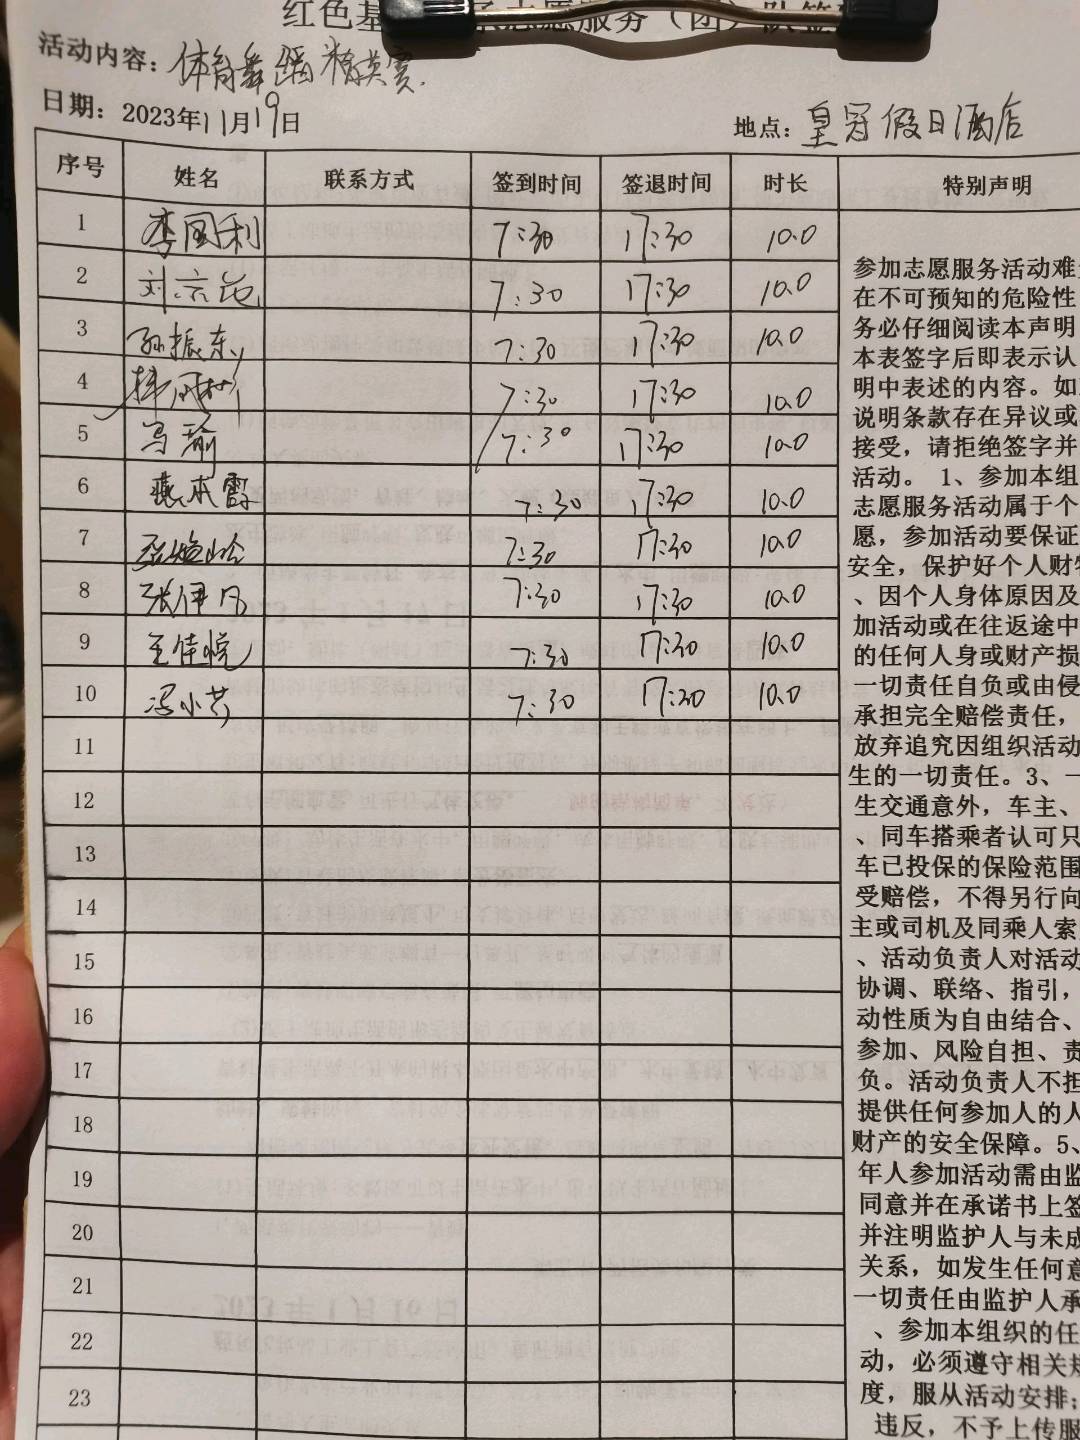 红色基
志愿服务（团）队签
活动内容：体育舞蹈精英赛.
日期：2023年11月19日
地点：皇冠假日酒店
序号 姓名 联系方式 签到时间 签退时间 时长 特别声明
1 李国利 7:30 17:30 10.0
2 7:30 17:30 10.0
3 孙振东 7:30 17:30 10.0
4 7:30 17:30 10.0
5 马瑜 7:30 17:30 10.0
6 7:30 17:30 10.0
7 7:30 17:30 10.0
8 张伊凡 7:30 17:30 10.0
9 王佳悦 7:30 17:30 10.0
10 冯小芮 7:30 17:30 10.0
11
12
13
14
15
16
17
18
19
20
21
22
23
参加志愿服务活动难
在不可预知的危险性
务必仔细阅读本声明
本表签字后即表示认
明中表述的内容。如
说明条款存在异议或
接受，请拒绝签字并
活动。 1、参加本组
志愿服务活动属于个
愿，参加活动要保证
安全，保护好个人财
、因个人身体原因及
加活动或在往返途中
的任何人身或财产损
一切责任自负或由侵
承担完全赔偿责任，
放弃追究因组织活动
生的一切责任。3、一
生交通意外，车主、
、同车搭乘者认可只
车已投保的保险范围
受赔偿，不得另行向
主或司机及同乘人索
、活动负责人对活动
协调、联络、指引，
动性质为自由结合、
参加、风险自担、责
负。活动负责人不担
提供任何参加人的人
财产的安全保障。5、
年人参加活动需由监
同意并在承诺书上签
并注明监护人与未成
关系，如发生任何意
一切责任由监护人承
、参加本组织的任
动，必须遵守相关规
度，服从活动安排；
违反，不予上传服